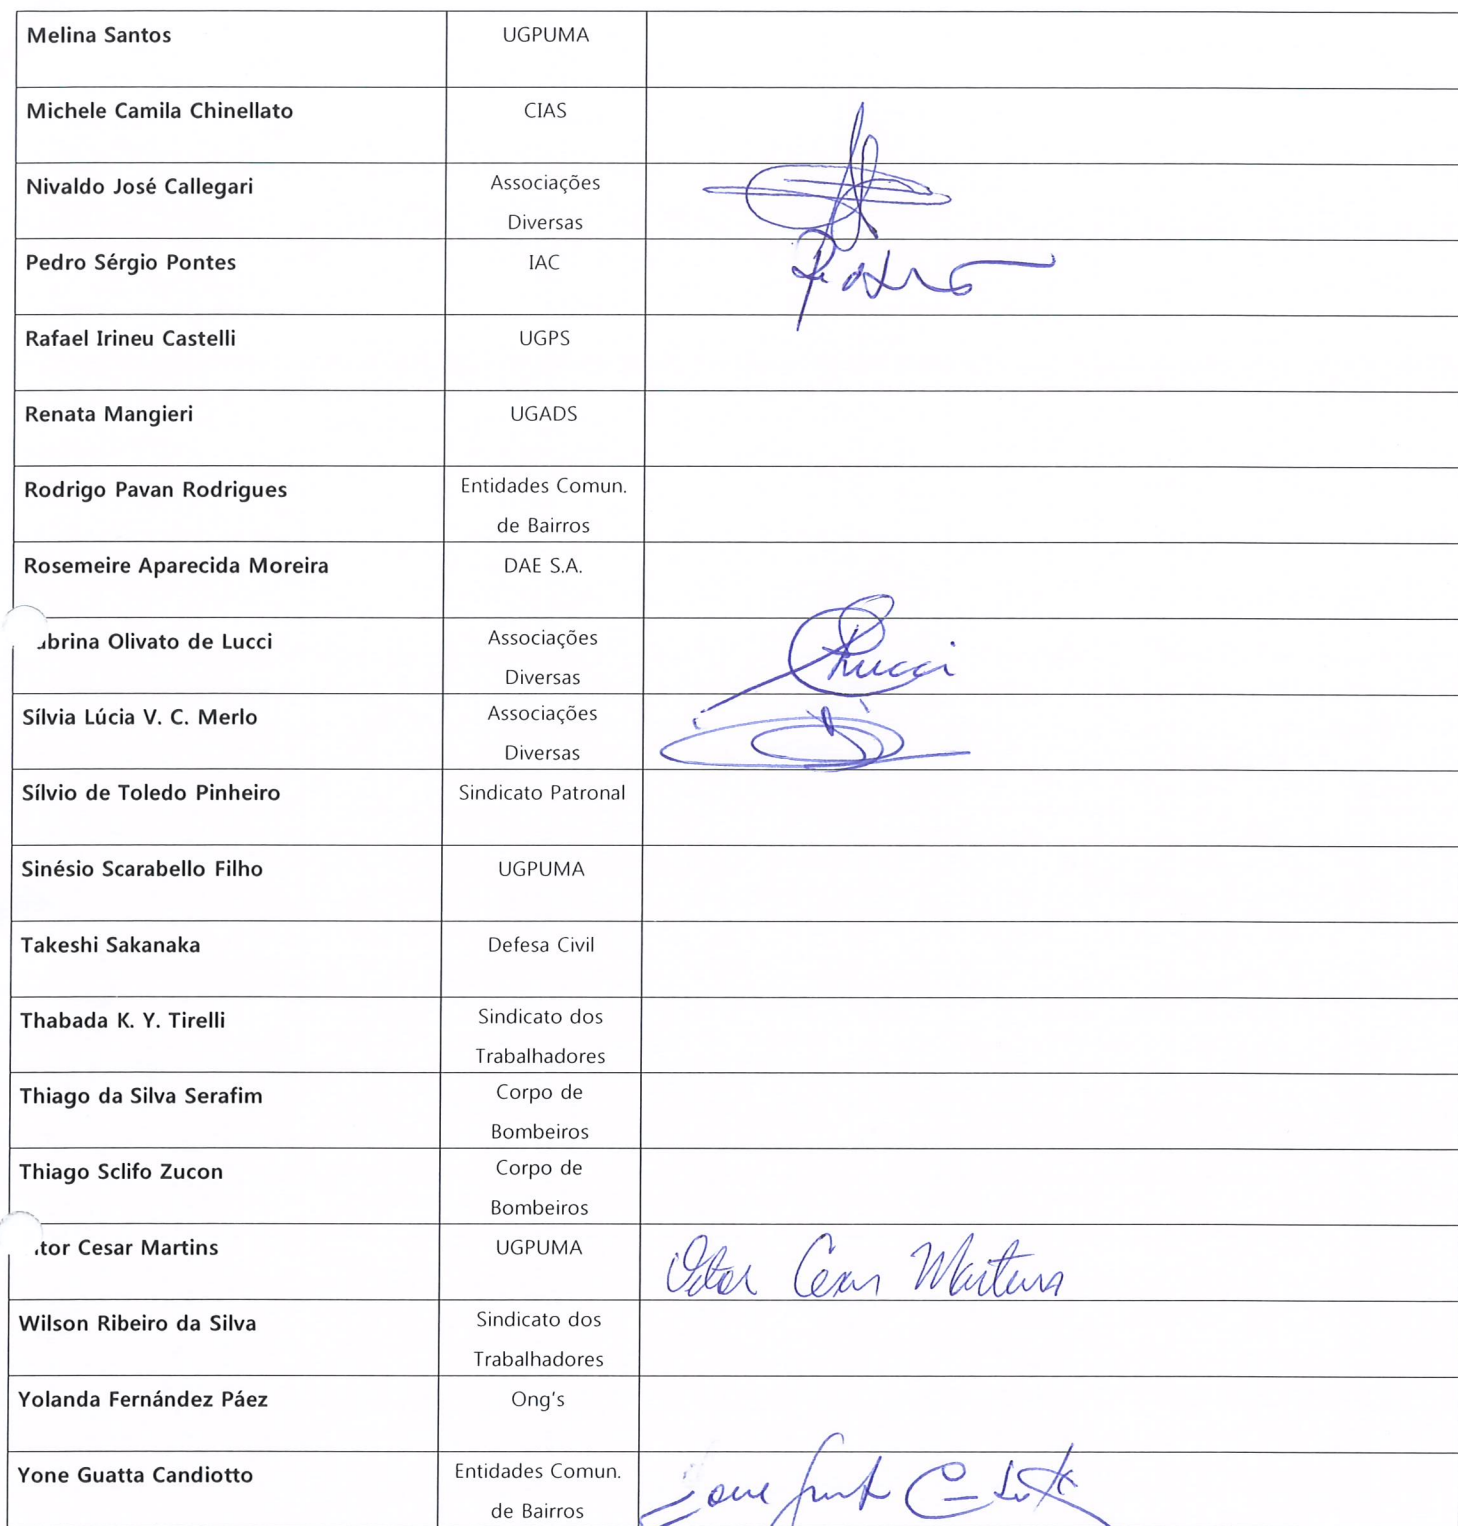 Melina Santos UGPUMA
Michele Camila Chinellato CIAS
Nivaldo José Callegari Associações
Diversas
Pedro Sérgio Pontes IAC
Pedro
Rafael Irineu Castelli UGPS
Renata Mangieri UGADS
Rodrigo Pavan Rodrigues Entidades Comun.
de Bairros
Rosemeire Aparecida Moreira DAE S.A.
abrina Olivato de Lucci Associações
Diversas
Lucci
Sílvia Lúcia V. C. Merlo Associações
Diversas
Sílvio de Toledo Pinheiro Sindicato Patronal
Sinésio Scarabello Filho UGPUMA
Takeshi Sakanaka Defesa Civil
Thabada K. Y. Tirelli Sindicato dos
Trabalhadores
Thiago da Silva Serafim Corpo de
Bombeiros
Thiago Sclifo Zucon Corpo de
Bombeiros
itor Cesar Martins UGPUMA Vitor Cesar Martins
Wilson Ribeiro da Silva Sindicato dos
Trabalhadores
Yolanda Fernández Páez Ong's
Yone Guatta Candiotto Entidades Comun.
de Bairros